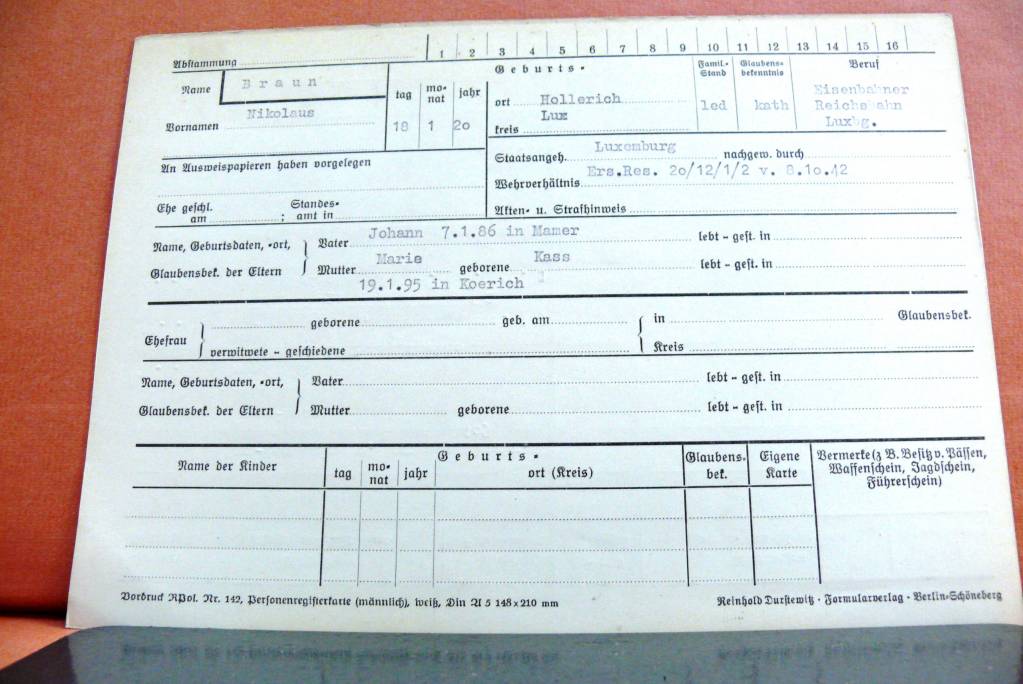 1 2 3 4 5 6 7 8 9 10 11 12 13 14 15 16
Abstammung
Name Braun
Vornamen Nikolaus
Geburts-
tag monat jahr
18 1 2o
ort Hollerich
Lux
kreis
Famil.-Stand
led
Glaubensbekenntnis
kath
Beruf
Eisenbahner
Reichsbahn
Luxbg.
An Ausweispapieren haben vorgelegen
Staatsangeh. Luxemburg nachgew. durch
Wehrverhältnis Ers.Res. 2o/12/1/2 v. 8.1o.42
Ehe geschl. am ; Standesamt in
Akten- u. Strafhinweis
Name, Geburtsdaten, -ort, Vater Johann 7.1.86 in Mamer lebt - gest. in
Glaubensbek. der Eltern Mutter Marie geborene Kass lebt - gest. in
19.1.95 in Koerich
Ehefrau geborene geb. am in Glaubensbek.
verwitwete - geschiedene Kreis
Name, Geburtsdaten, -ort, Vater lebt - gest. in
Glaubensbek. der Eltern Mutter geborene lebt - gest. in
Name der Kinder
Geburts-
tag monat jahr ort (Kreis)
Glaubensbek.
Eigene Karte
Vermerke (z B. Besitz v. Pässen,
Waffenschein, Jagdschein,
Führerschein)
Vordruck RPol. Nr. 142, Personenregisterkarte (männlich), weiß, Din A 5 148 x 210 mm
Reinhold Durstewitz · Formularverlag · Berlin-Schöneberg